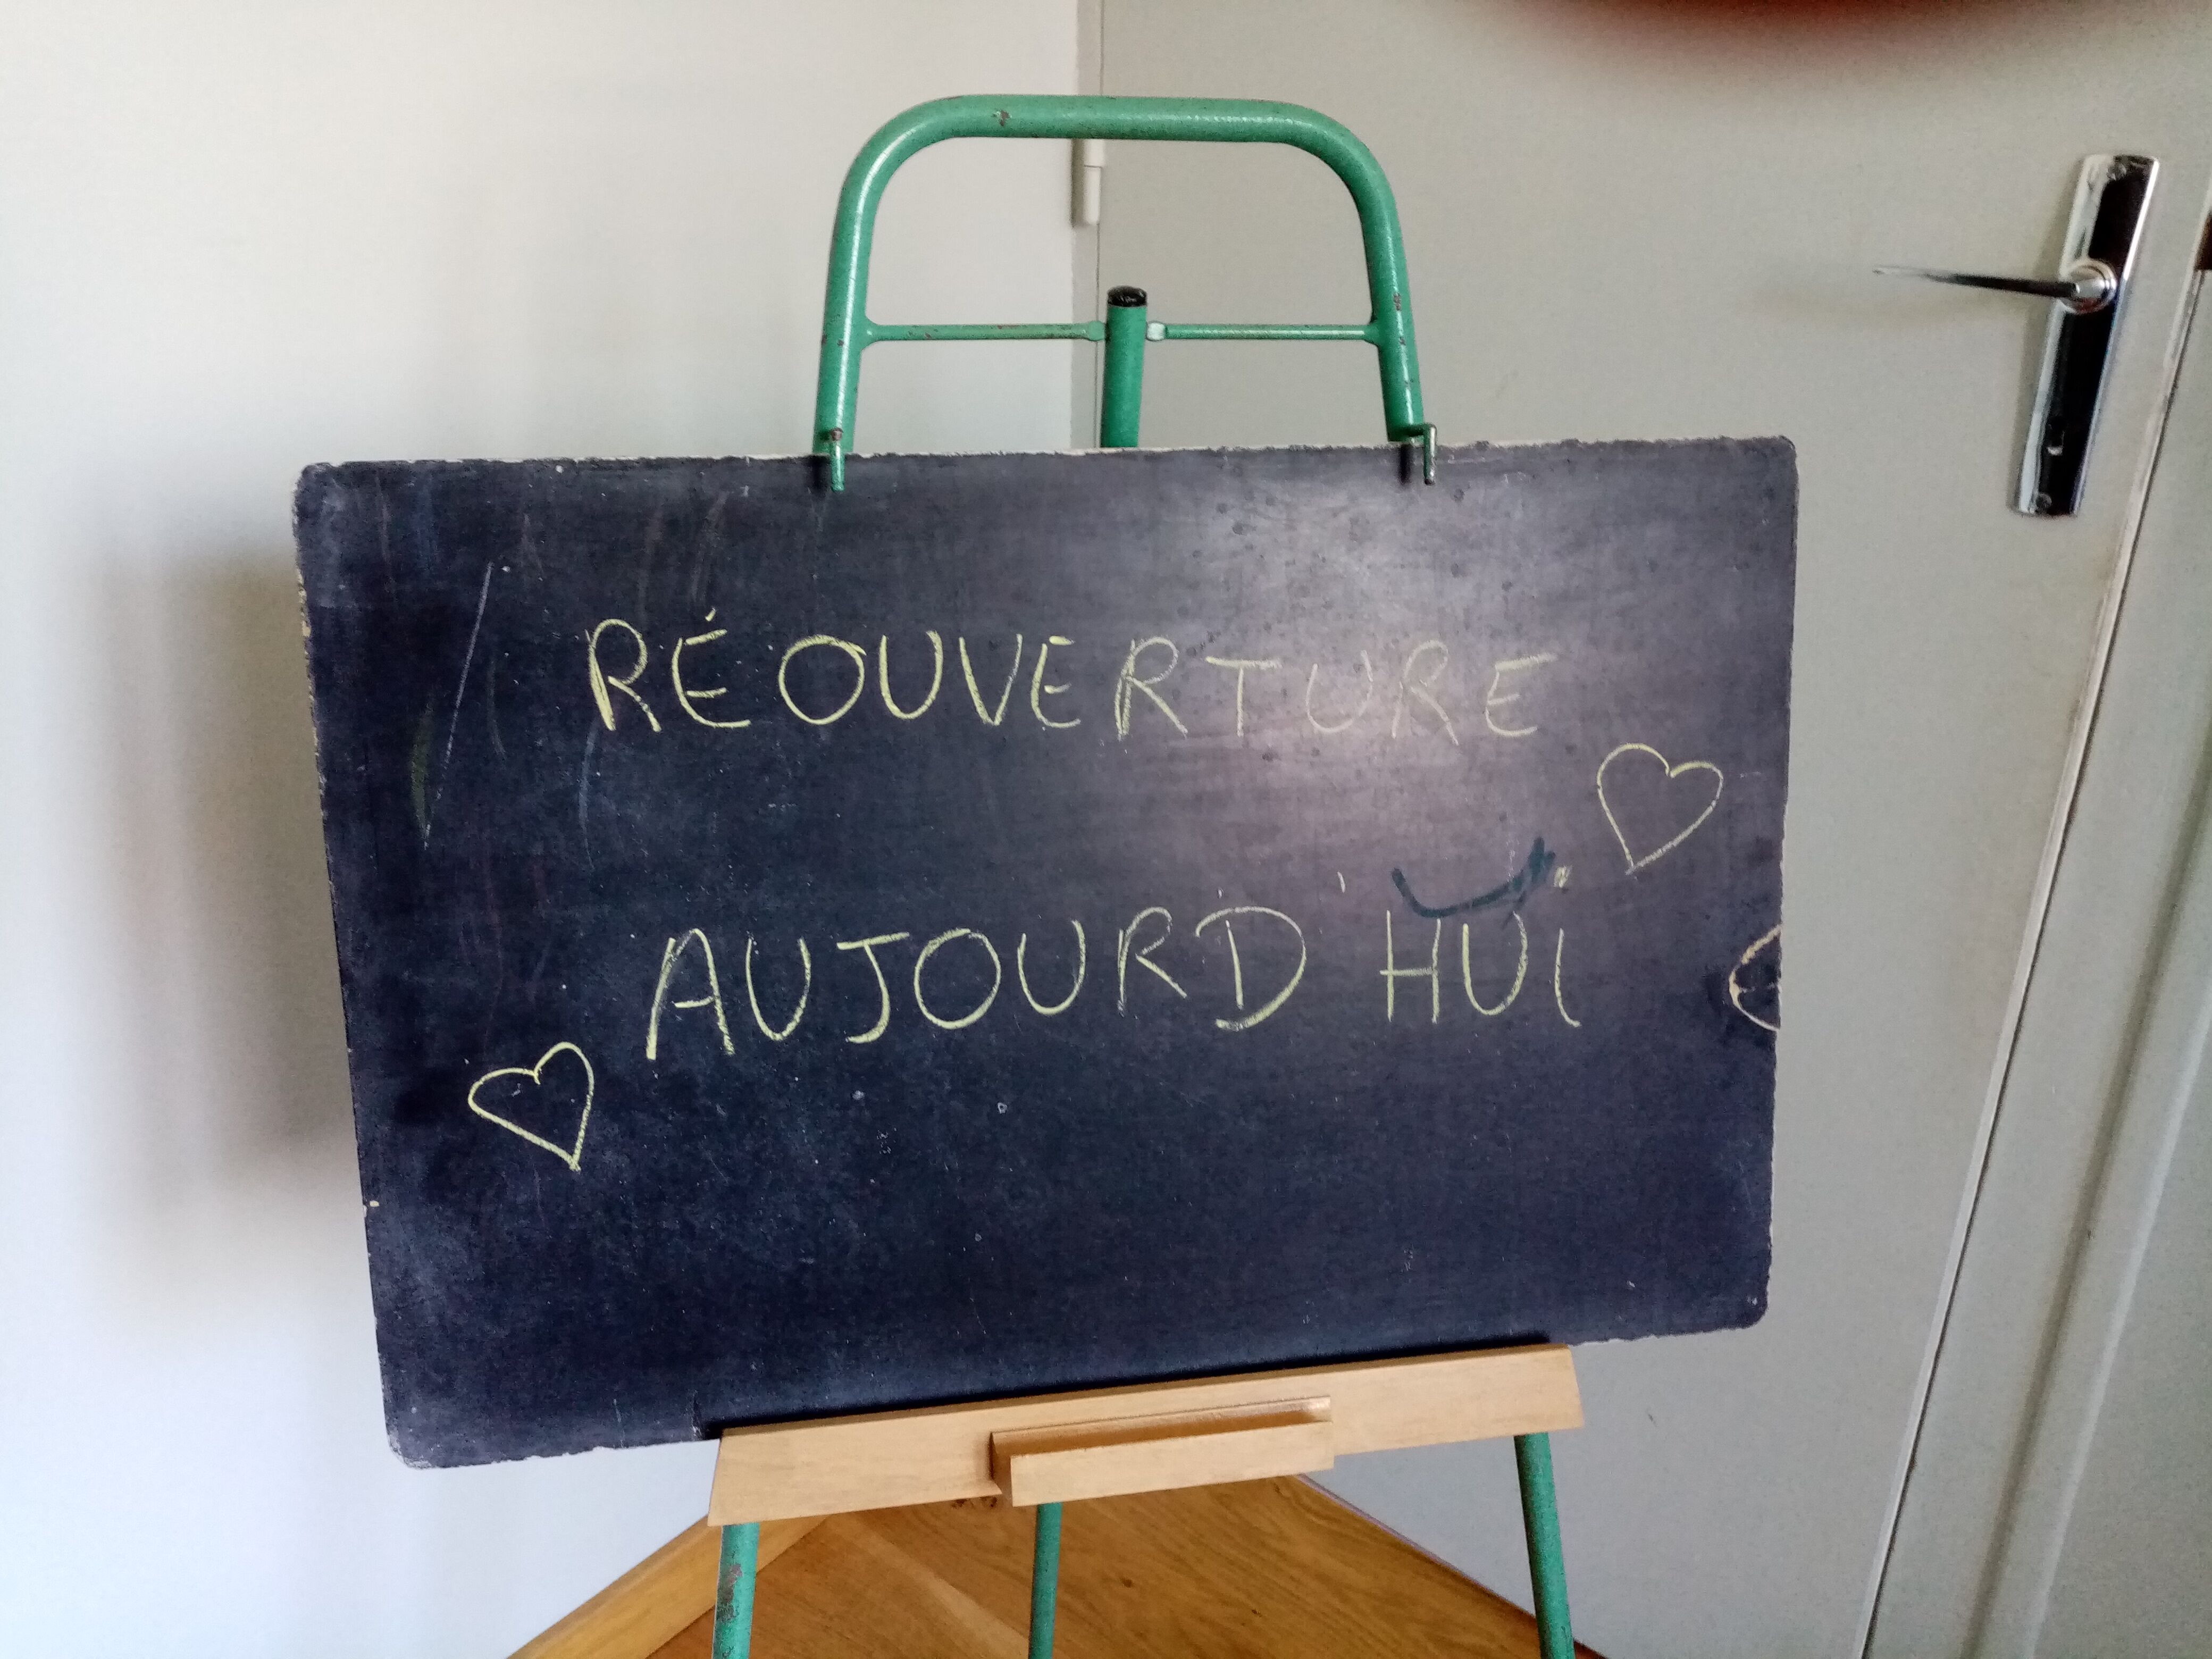 RÉOUVERTURE
AUJOURD'HUi